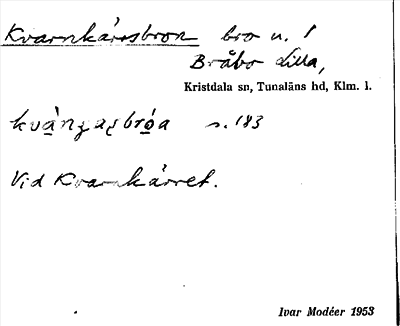 Kvarnkärrsbron bro u. 1
Bråbo Lilla,
Kristdala sn, Tunaläns hd, Klm. l.
s. 183
Vid Kvarnkärret.
Ivar Modéer 1953